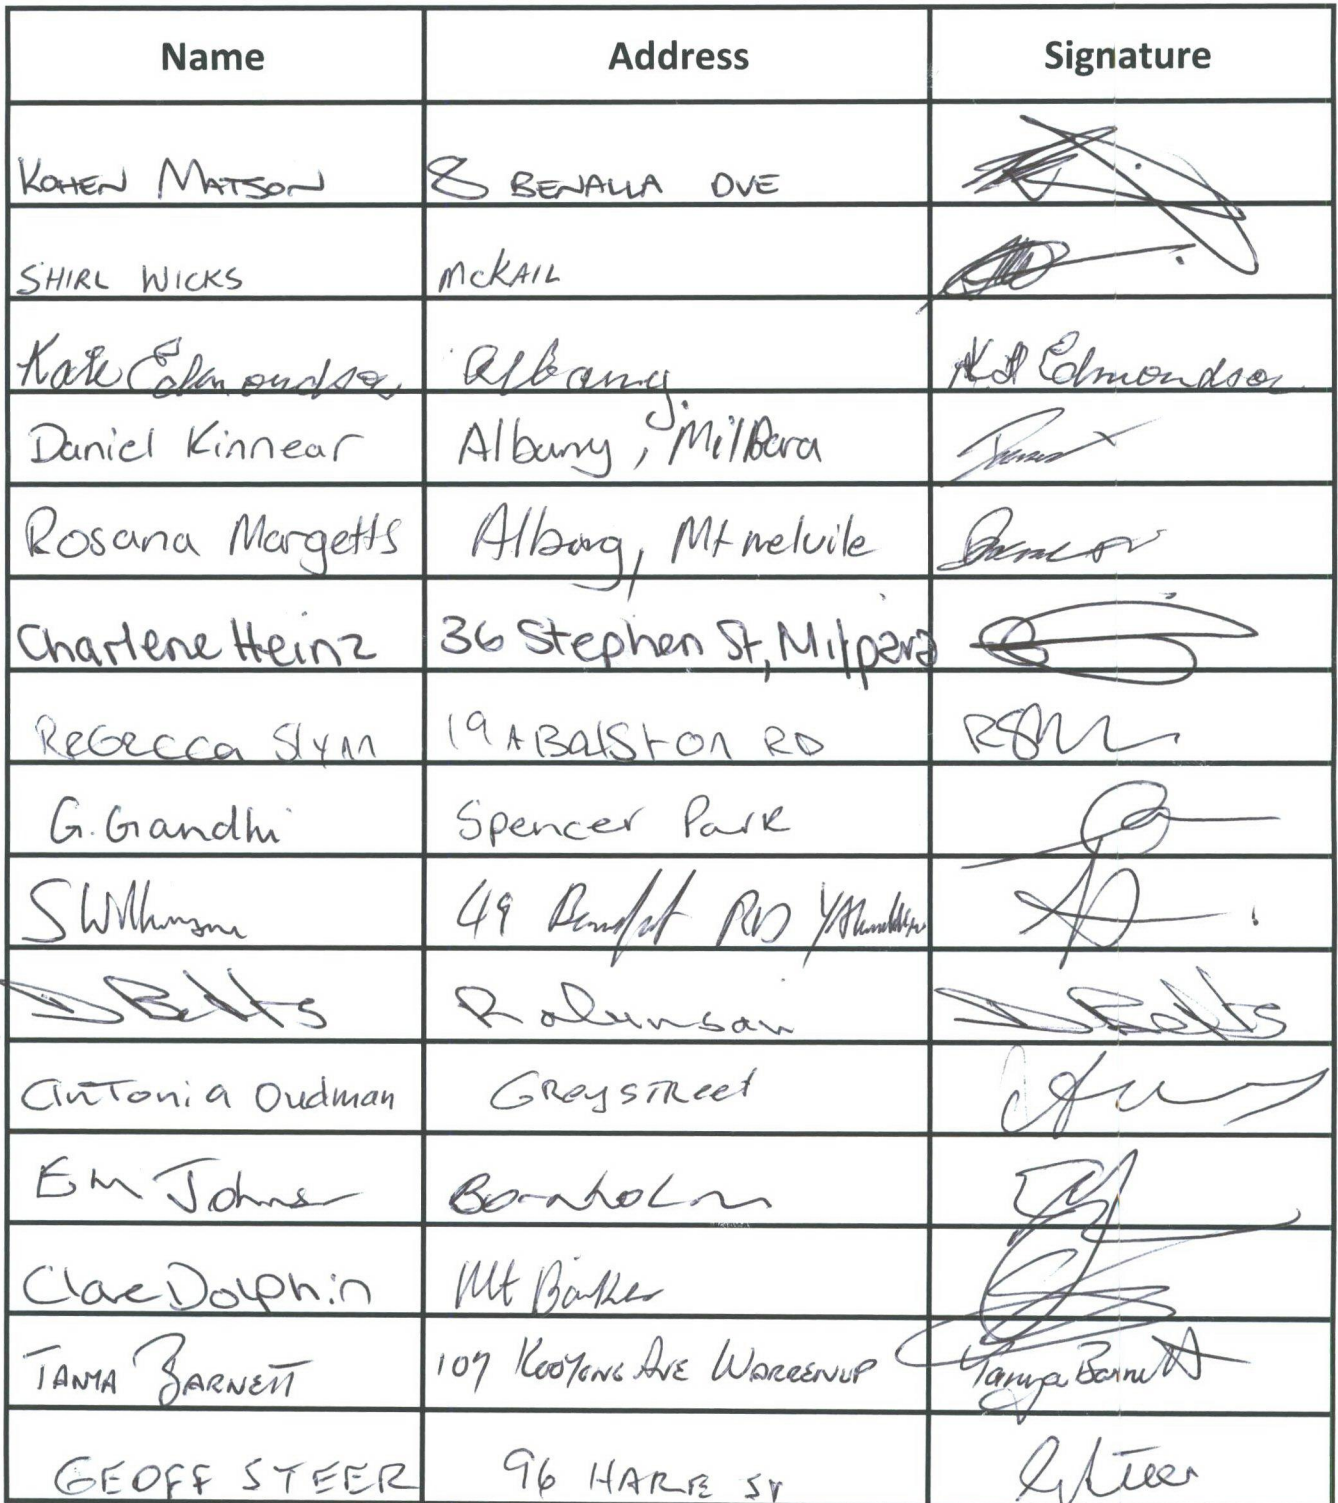 Name Address Signature
KOHEN MATSON 8 BENALLA DVE
SHIRL WICKS McKAIL
Kate Edmondson Albany Edmondson
Daniel Kinnear Albany, Milpara
Rosana Margetts Albany, Mt melvile
Charlene Heinz 36 Stephen St, Milpara
Rebecca Slynn 19A Balston RD
G. Gandhi Spencer Park
S Wilkinson 49 RD
D Betts Robinson D Betts
Antonia Oudman Grey street
Em Johns Bornholm
Clare Dolphin Mt Barker
TANYA BARNETT 107 KOOYONG AVE WARRENUP Tanya Barnett
GEOFF STEER 96 HARE ST